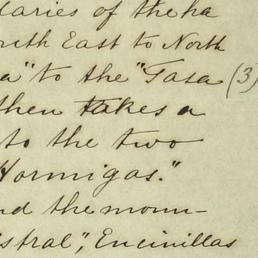 daries of the ha
orth East to North
a" to the "Tasa (3)
then takes a
to the two
Hormigas."
nd the moun-
istral", Encinillas